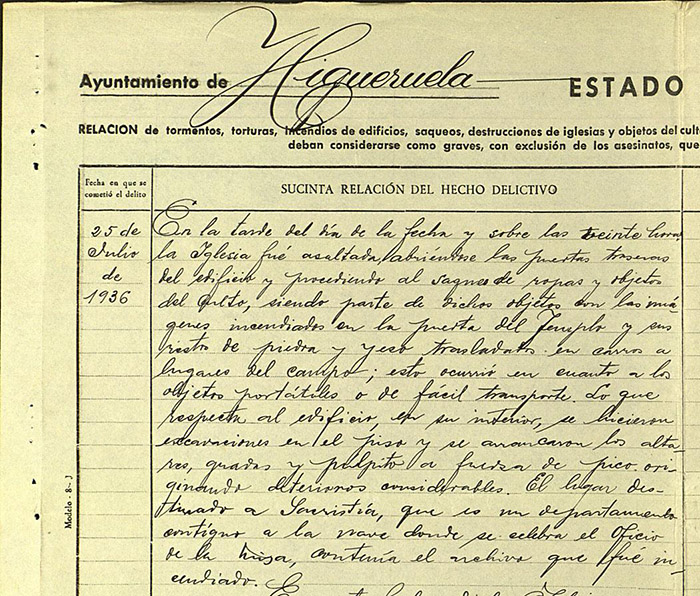 Ayuntamiento de Higueruela
ESTADO
RELACION de tormentos, torturas, incendios de edificios, saqueos, destrucciones de iglesias y objetos del cult
deban considerarse como graves, con exclusión de los asesinatos, que
Fecha en que se
cometió el delito
SUCINTA RELACIÓN DEL HECHO DELICTIVO
25 de
Julio
de
1936
En la tarde del día de la fecha y sobre las veinte horas
la Iglesia fué asaltada, abriendose las puertas traseras
del edificio y procediendo al saqueo de ropas y objetos
del Culto, siendo parte de dichos objetos con las imá-
genes incendiados en la puerta del Templo y sus
restos de piedra y yeso trasladados en carros a
lugares del campo; esto ocurrió en cuanto a los
objetos portátiles o de fácil transporte. Lo que
respecta al edificio, en su interior, se hicieron
excavaciones en el piso y se arrancaron los alta-
res, gradas y pulpito a fuerza de pico ori-
ginando deterioros considerables. El lugar des-
tinado a Sacristía, que es un departamento
contiguo a la nave donde se celebra el Oficio
de la misa, contenía el archivo que fué in-
cendiado.
Modelo - 8.- J